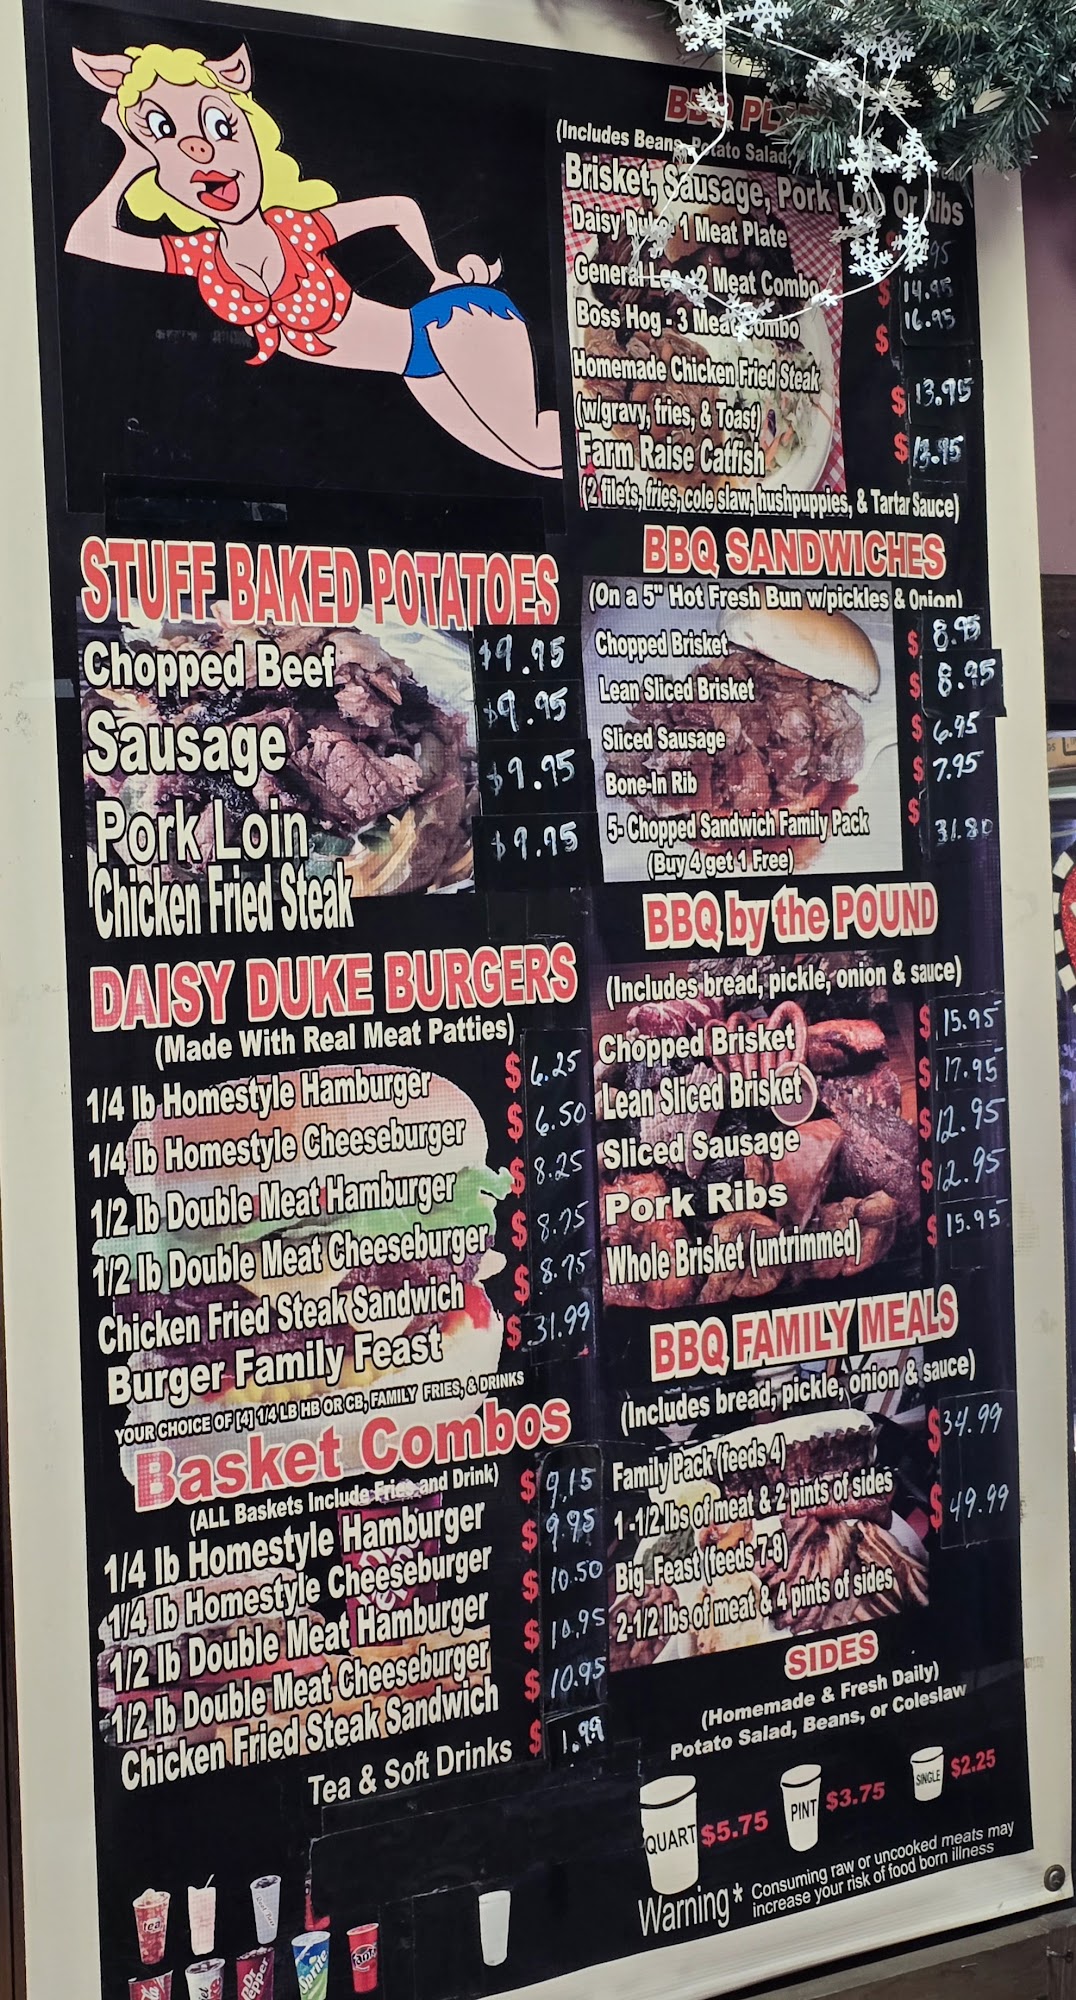 STUFF BAKED POTATOES
Chopped Beef $9.95
Sausage $9.95
Pork Loin $9.95
Chicken Fried Steak $9.95
DAISY DUKE BURGERS
(Made With Real Meat Patties)
1/4 lb Homestyle Hamburger $6.25
1/4 lb Homestyle Cheeseburger $6.50
1/2 lb Double Meat Hamburger $8.25
1/2 lb Double Meat Cheeseburger $8.75
Chicken Fried Steak Sandwich $8.75
Burger Family Feast $31.99
YOUR CHOICE OF [4] 1/4 LB HB OR CB, FAMILY FRIES, & DRINKS
Basket Combos
(ALL Baskets Include Fries and Drink)
1/4 lb Homestyle Hamburger $9.15
1/4 lb Homestyle Cheeseburger $9.95
1/2 lb Double Meat Hamburger $10.50
1/2 lb Double Meat Cheeseburger $10.95
Chicken Fried Steak Sandwich $10.95
Tea & Soft Drinks $1.99
tea
Dr Pepper
Sprite
Fanta
BBQ
(Includes Beans, Potato Salad,
Brisket, Sausage, Pork Loin Or Ribs
Daisy Duke - 1 Meat Plate
General Lee - 2 Meat Combo $14.95
Boss Hog - 3 Meat Combo $16.95
Homemade Chicken Fried Steak $13.95
(w/gravy, fries, & Toast)
Farm Raise Catfish $13.95
(2 filets, fries, cole slaw, hushpuppies, & Tartar Sauce)
BBQ SANDWICHES
(On a 5" Hot Fresh Bun w/pickles & Onion)
Chopped Brisket $8.95
Lean Sliced Brisket $8.95
Sliced Sausage $6.95
Bone-In Rib $7.95
5- Chopped Sandwich Family Pack $31.80
(Buy 4 get 1 Free)
BBQ by the POUND
(Includes bread, pickle, onion & sauce)
Chopped Brisket $15.95
Lean Sliced Brisket $17.95
Sliced Sausage $12.95
Pork Ribs $12.95
Whole Brisket (untrimmed) $15.95
BBQ FAMILY MEALS
(Includes bread, pickle, onion & sauce)
Family Pack (feeds 4) $34.99
1 -1/2 lbs of meat & 2 pints of sides
Big Feast (feeds 7-8) $49.99
2-1/2 lbs of meat & 4 pints of sides
SIDES
(Homemade & Fresh Daily)
Potato Salad, Beans, or Coleslaw
QUART $5.75 PINT $3.75 SINGLE $2.25
Warning* Consuming raw or uncooked meats may
increase your risk of food born illness